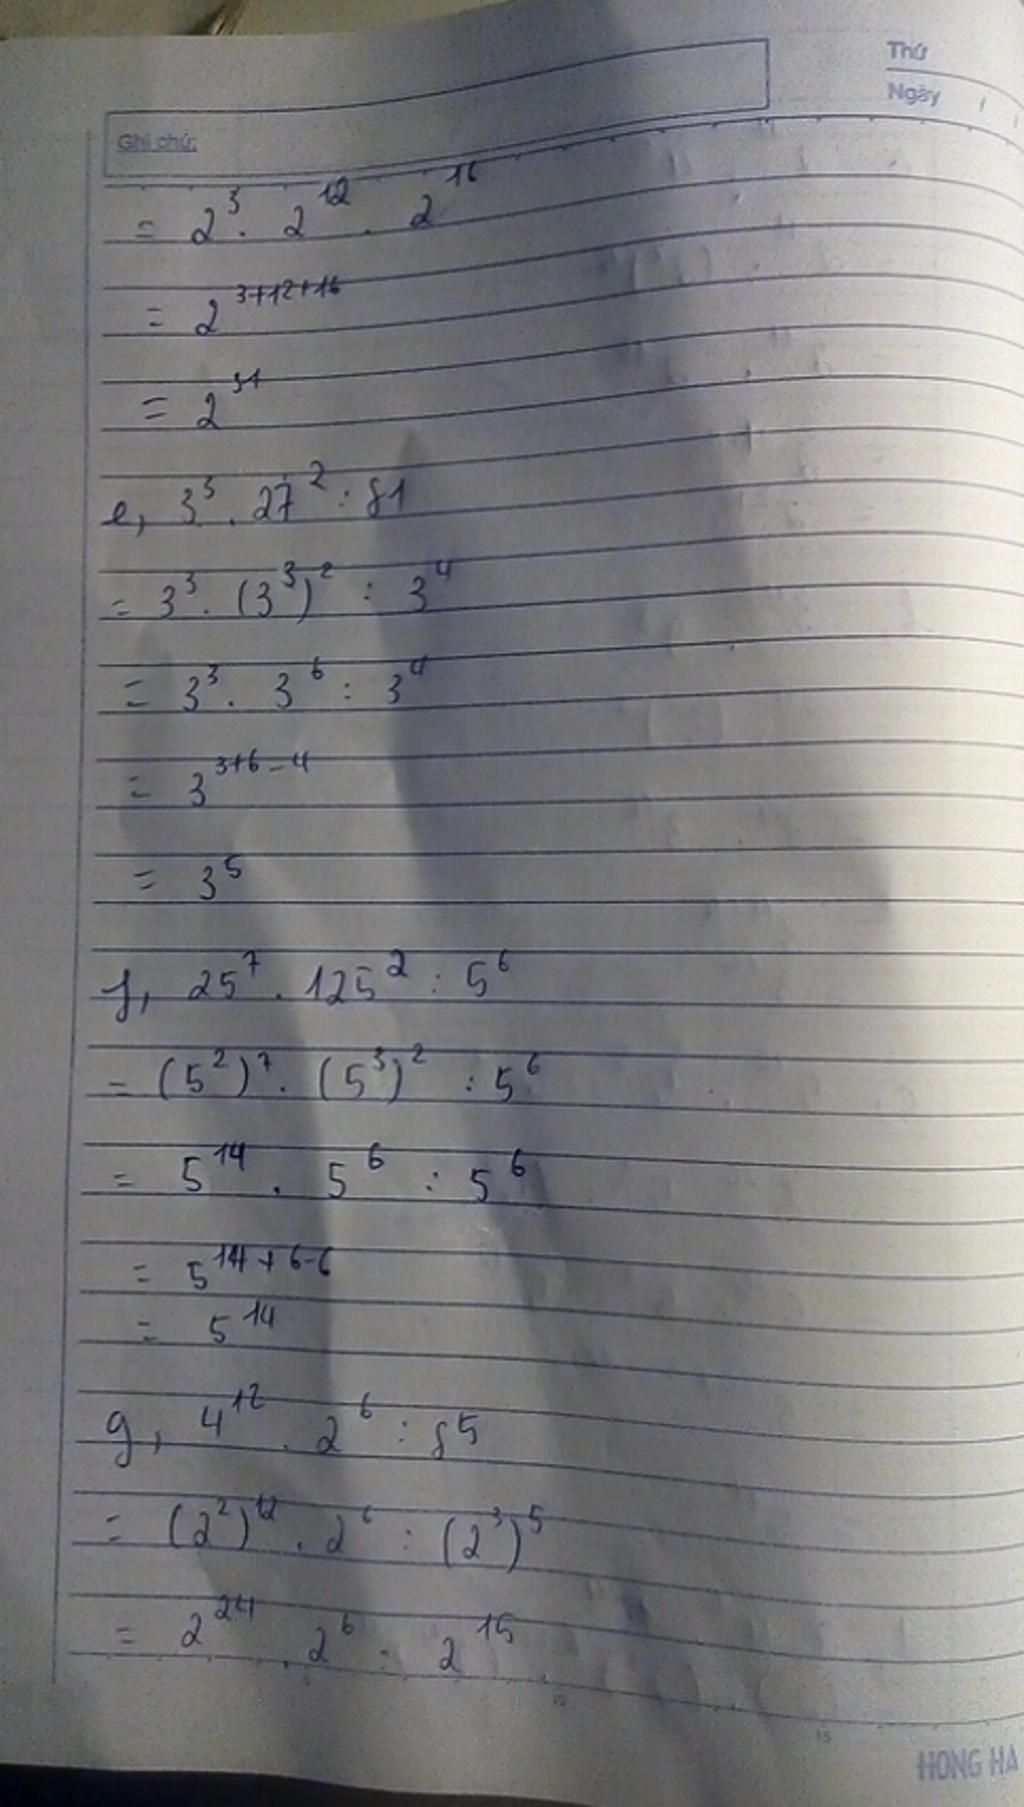 Thứ
Ngày / /
Ghi chú:
= 2³ . 2¹² . 2¹⁶
= 2³⁺¹²⁺¹⁶
= 2³¹
e, 3³ . 27² : 81
= 3³ . (3³)² : 3⁴
= 3³ . 3⁶ : 3⁴
= 3³⁺⁶⁻⁴
= 3⁵
f, 25⁷ . 125² : 5⁶
= (5²)⁷ . (5³)² : 5⁶
= 5¹⁴ . 5⁶ : 5⁶
= 5¹⁴⁺⁶⁻⁶
= 5¹⁴
g, 4¹² . 2⁶ : 8⁵
= (2²)¹² . 2⁶ : (2³)⁵
= 2²⁴ . 2⁶ : 2¹⁵
10
15
HONG HA